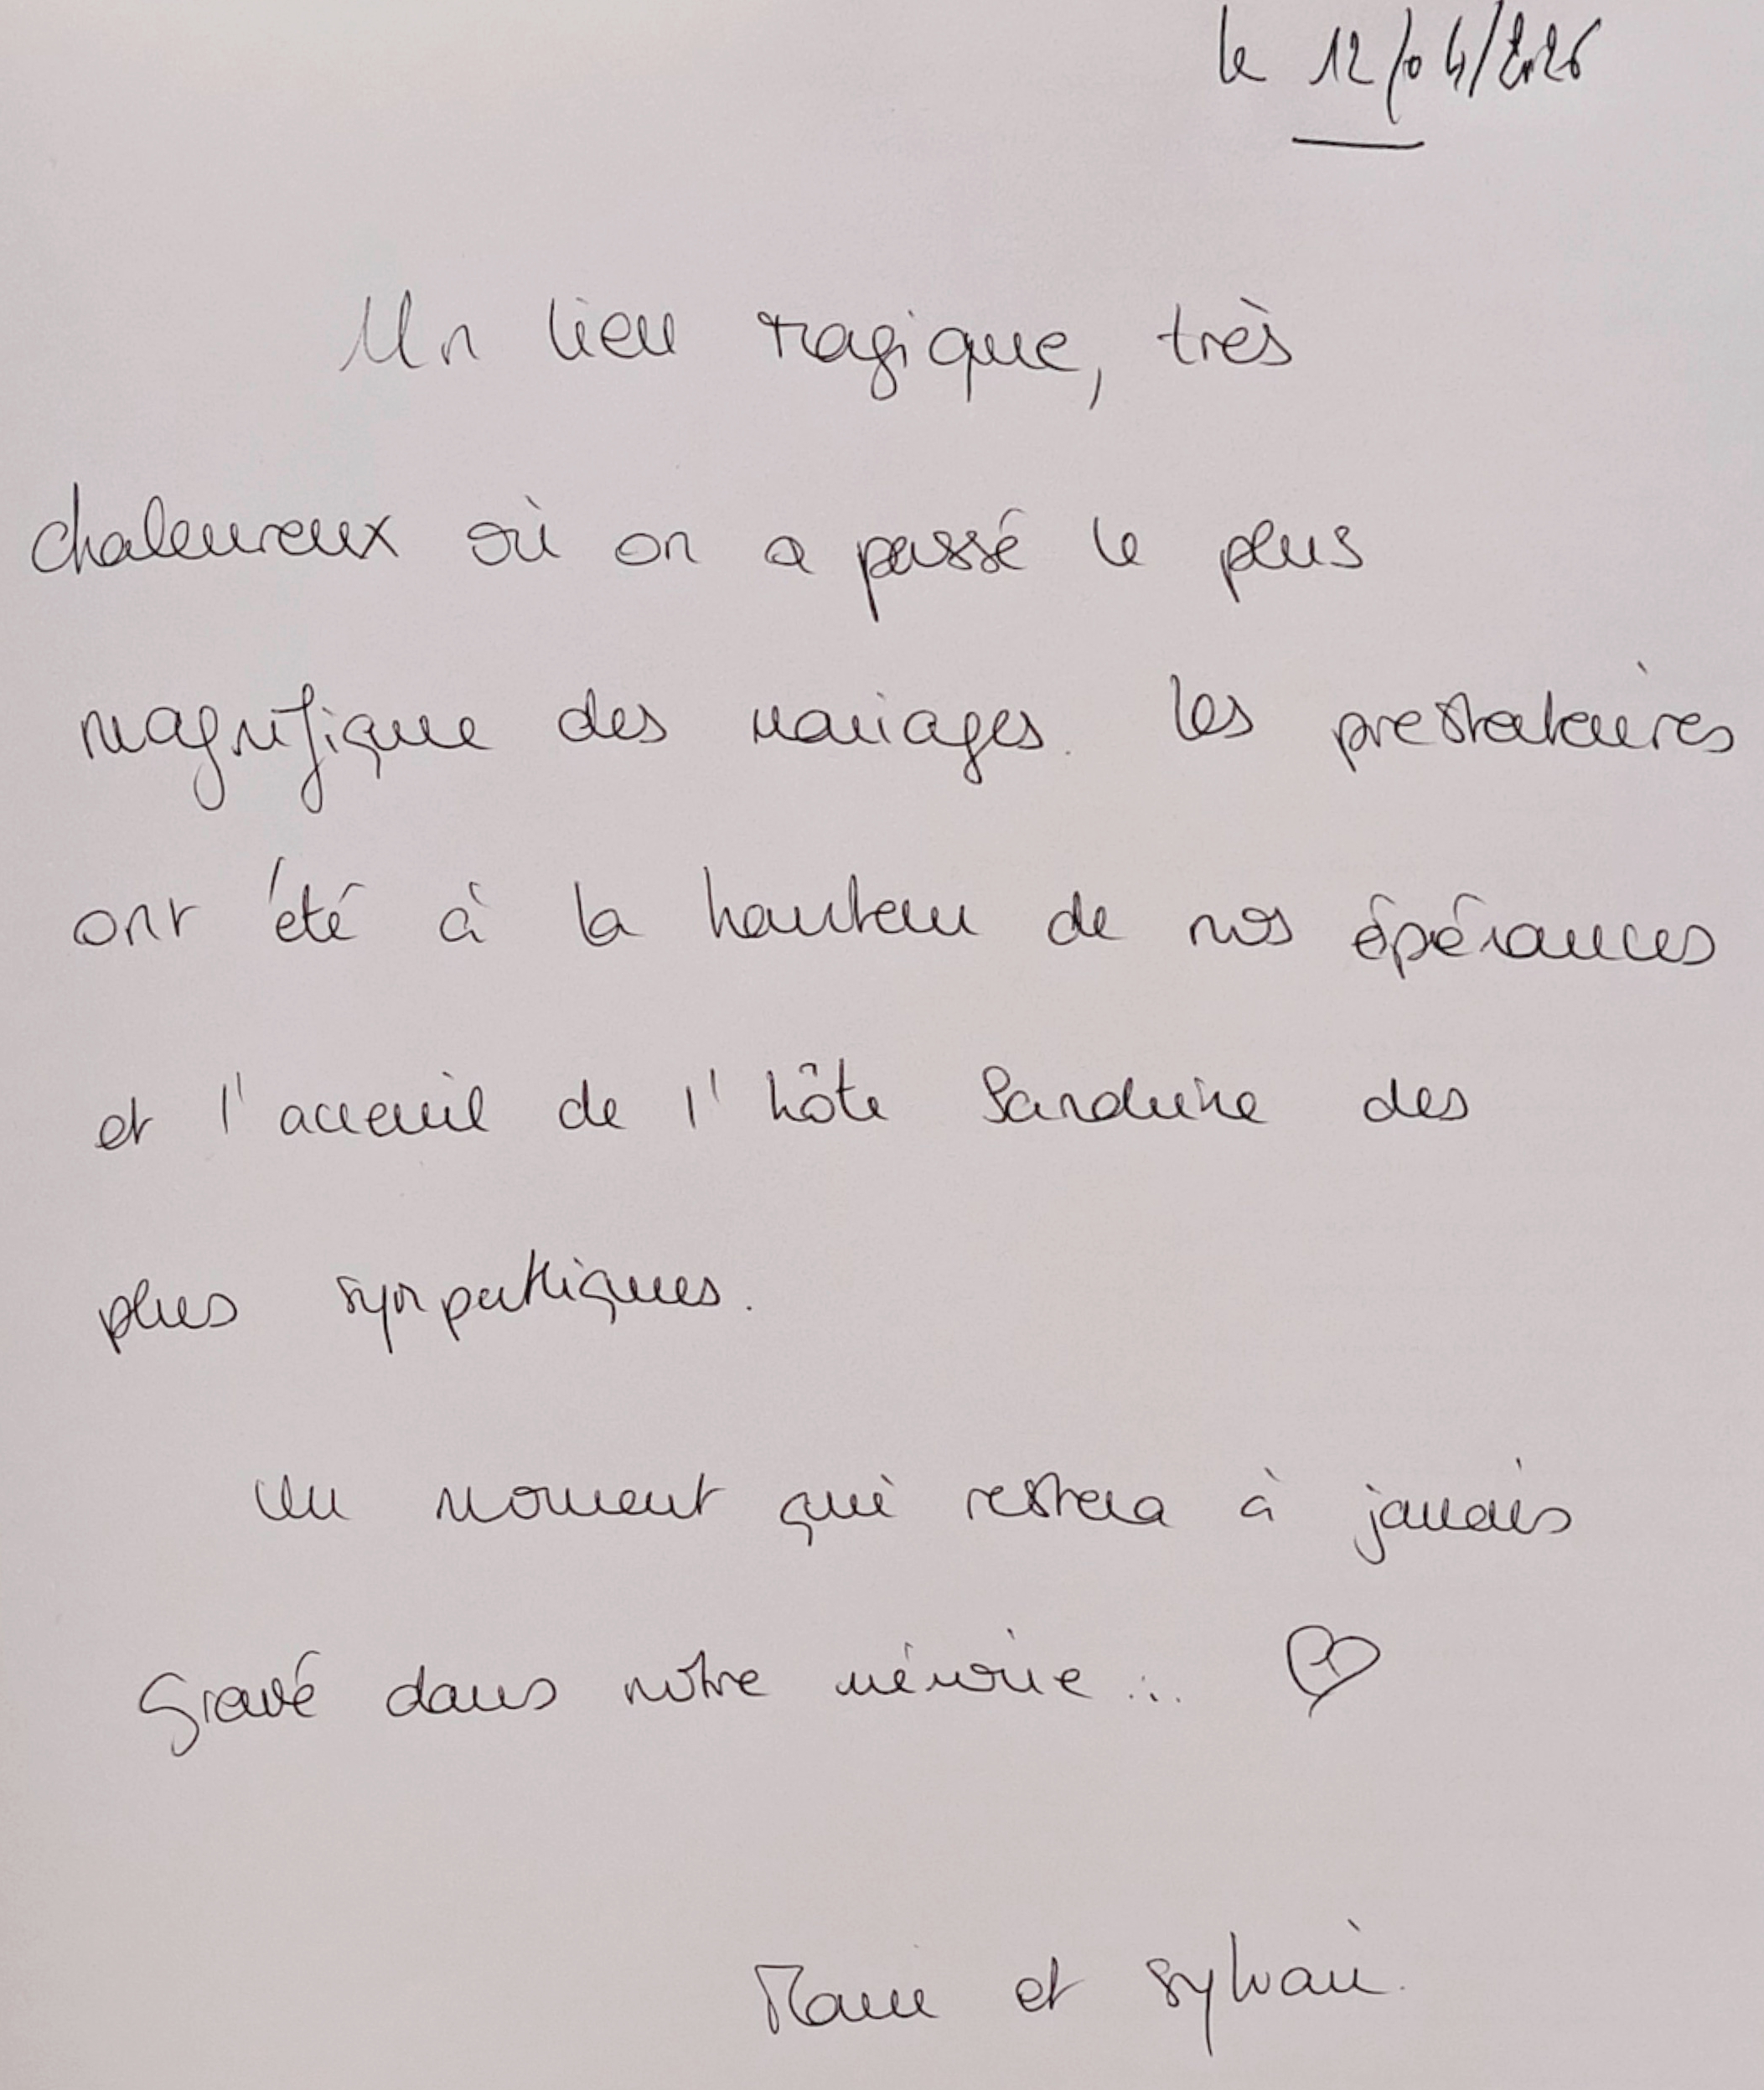 le 12/04/2026
Un lieu magique, très
chaleureux où on a passé le plus
magnifique des mariages. Les prestataires
ont été à la hauteur de nos épérances
et l'acceuil de l'hôte Sandrine des
plus sympathiques.
Un moment qui restera à jamais
Gravé dans notre mémoire...
Marie et Sylvain.